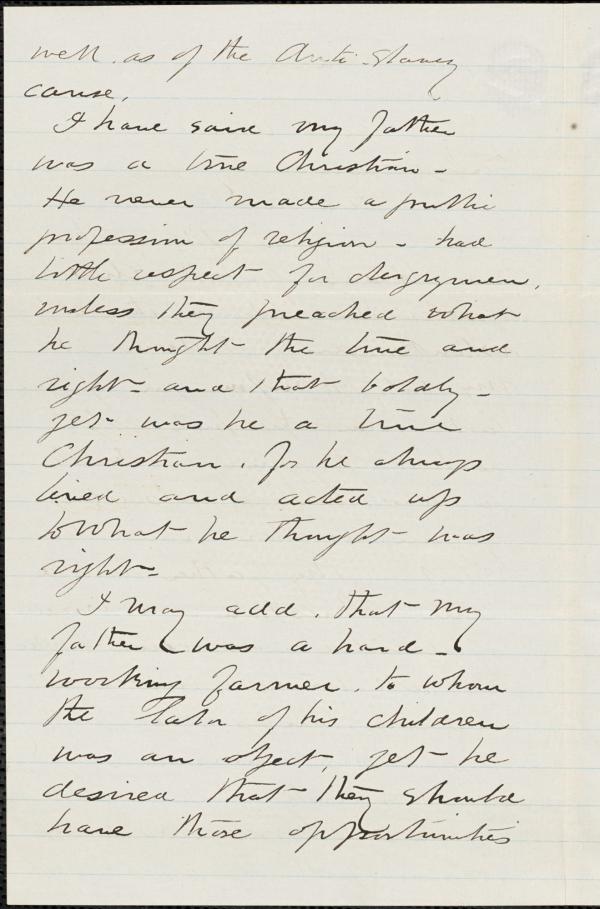 well. as of the Anti-Slavery
cause.
I have said my father
was a true Christian -
He never made a public
profession of religion - had
little respect for clergymen,
unless they preached what
he thought the true and
right - and that boldly -
yet was he a true
Christian, for he always
lived and acted up
to what he thought was
right -
I may add, that my
father was a hard-
working farmer, to whom
the labor of his children
was an object, yet he
desired that they should
have those opportunities